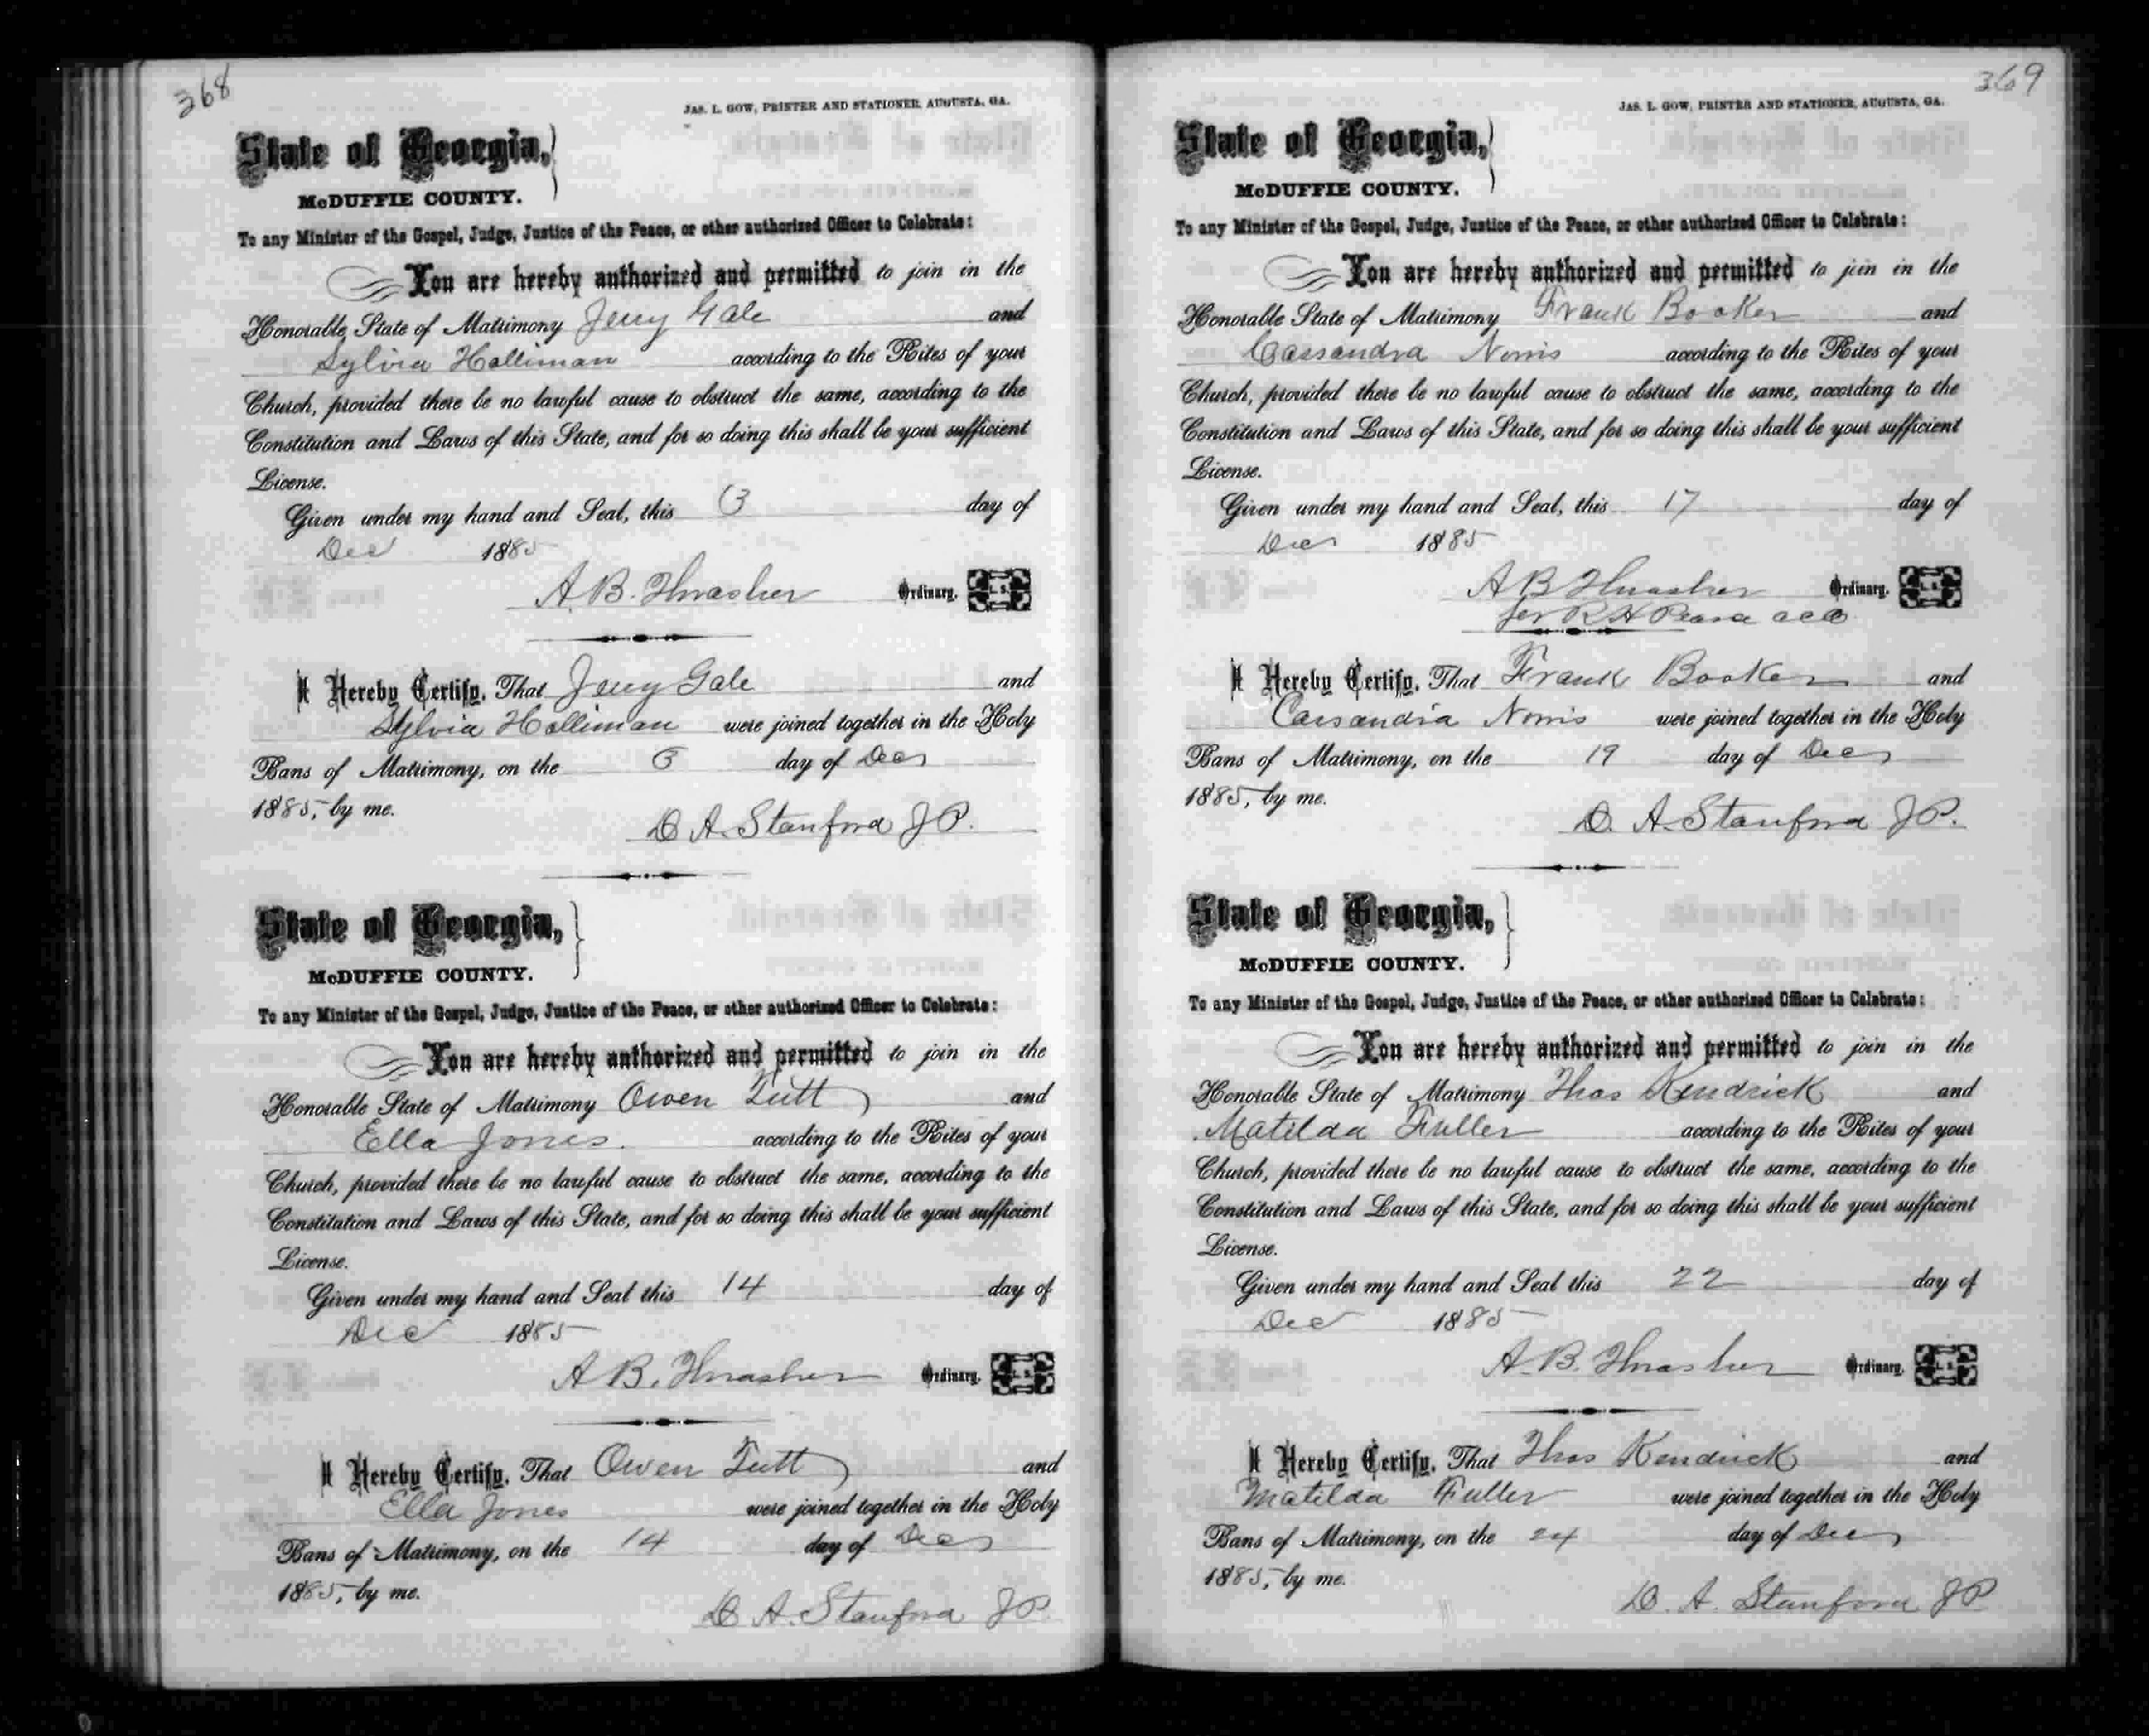 368
JAS. L. GOW, PRINTER AND STATIONER, AUGUSTA, GA.
State of Georgia,
McDUFFIE COUNTY.
To any Minister of the Gospel, Judge, Justice of the Peace, or other authorized Officer to Celebrate:
You are hereby authorized and permitted to join in the
Honorable State of Matrimony Jerry Gale and
Sylvia Holliman according to the Rites of your
Church, provided there be no lawful cause to obstruct the same, according to the
Constitution and Laws of this State, and for so doing this shall be your sufficient
License.
Given under my hand and Seal, this day of
Dec 1885
A. B. Thrasher Ordinary. L. S.
I Hereby Certify, That Jerry Gale and
Sylvia Holliman were joined together in the Holy
Bans of Matrimony, on the 6 day of Dec
1885, by me.
D A. Stanford J P.
State of Georgia,
McDUFFIE COUNTY.
To any Minister of the Gospel, Judge, Justice of the Peace, or other authorized Officer to Celebrate:
You are hereby authorized and permitted to join in the
Honorable State of Matrimony Owen Tutt and
Ella Jones. according to the Rites of your
Church, provided there be no lawful cause to obstruct the same, according to the
Constitution and Laws of this State, and for so doing this shall be your sufficient
License.
Given under my hand and Seal this 14 day of
Dec 1885
A B. Thrasher Ordinary. L. S.
I Hereby Certify, That Owen Tutt and
Ella Jones were joined together in the Holy
Bans of Matrimony, on the 14 day of Dec
1885, by me.
D A. Stanford J P.
369
JAS. L. GOW, PRINTER AND STATIONER, AUGUSTA, GA.
State of Georgia,
McDUFFIE COUNTY.
To any Minister of the Gospel, Judge, Justice of the Peace, or other authorized Officer to Celebrate:
You are hereby authorized and permitted to join in the
Honorable State of Matrimony Frank Booker and
Cassandra Norris according to the Rites of your
Church, provided there be no lawful cause to obstruct the same, according to the
Constitution and Laws of this State, and for so doing this shall be your sufficient
License.
Given under my hand and Seal, this 17 day of
Dec 1885
A B Thrasher Ordinary. L. S.
per R H Pearce
I Hereby Certify, That Frank Booker and
Cassandra Norris were joined together in the Holy
Bans of Matrimony, on the 19 day of Dec
1885, by me.
D. A. Stanford J P.
State of Georgia,
McDUFFIE COUNTY.
To any Minister of the Gospel, Judge, Justice of the Peace, or other authorized Officer to Celebrate:
You are hereby authorized and permitted to join in the
Honorable State of Matrimony Thos Kendrick and
Matilda Fuller according to the Rites of your
Church, provided there be no lawful cause to obstruct the same, according to the
Constitution and Laws of this State, and for so doing this shall be your sufficient
License.
Given under my hand and Seal this 22 day of
Dec 1885
A. B. Thrasher Ordinary. L. S.
I Hereby Certify, That Thos Kendrick and
Matilda Fuller were joined together in the Holy
Bans of Matrimony, on the 24 day of Dec
1885, by me.
D. A. Stanford J P